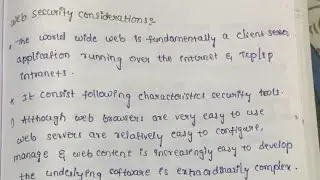 Web security considerations:
* The world wide web is fundamentally a client server
application running over the internet & Tcp/Ip
intranets.
* It consist following characteristics security tools.
1) Although web browsers are very easy to use
web servers are relatively easy to configure,
manage & web content is increasingly easy to develop
the underlying software is extraordinarily complex.